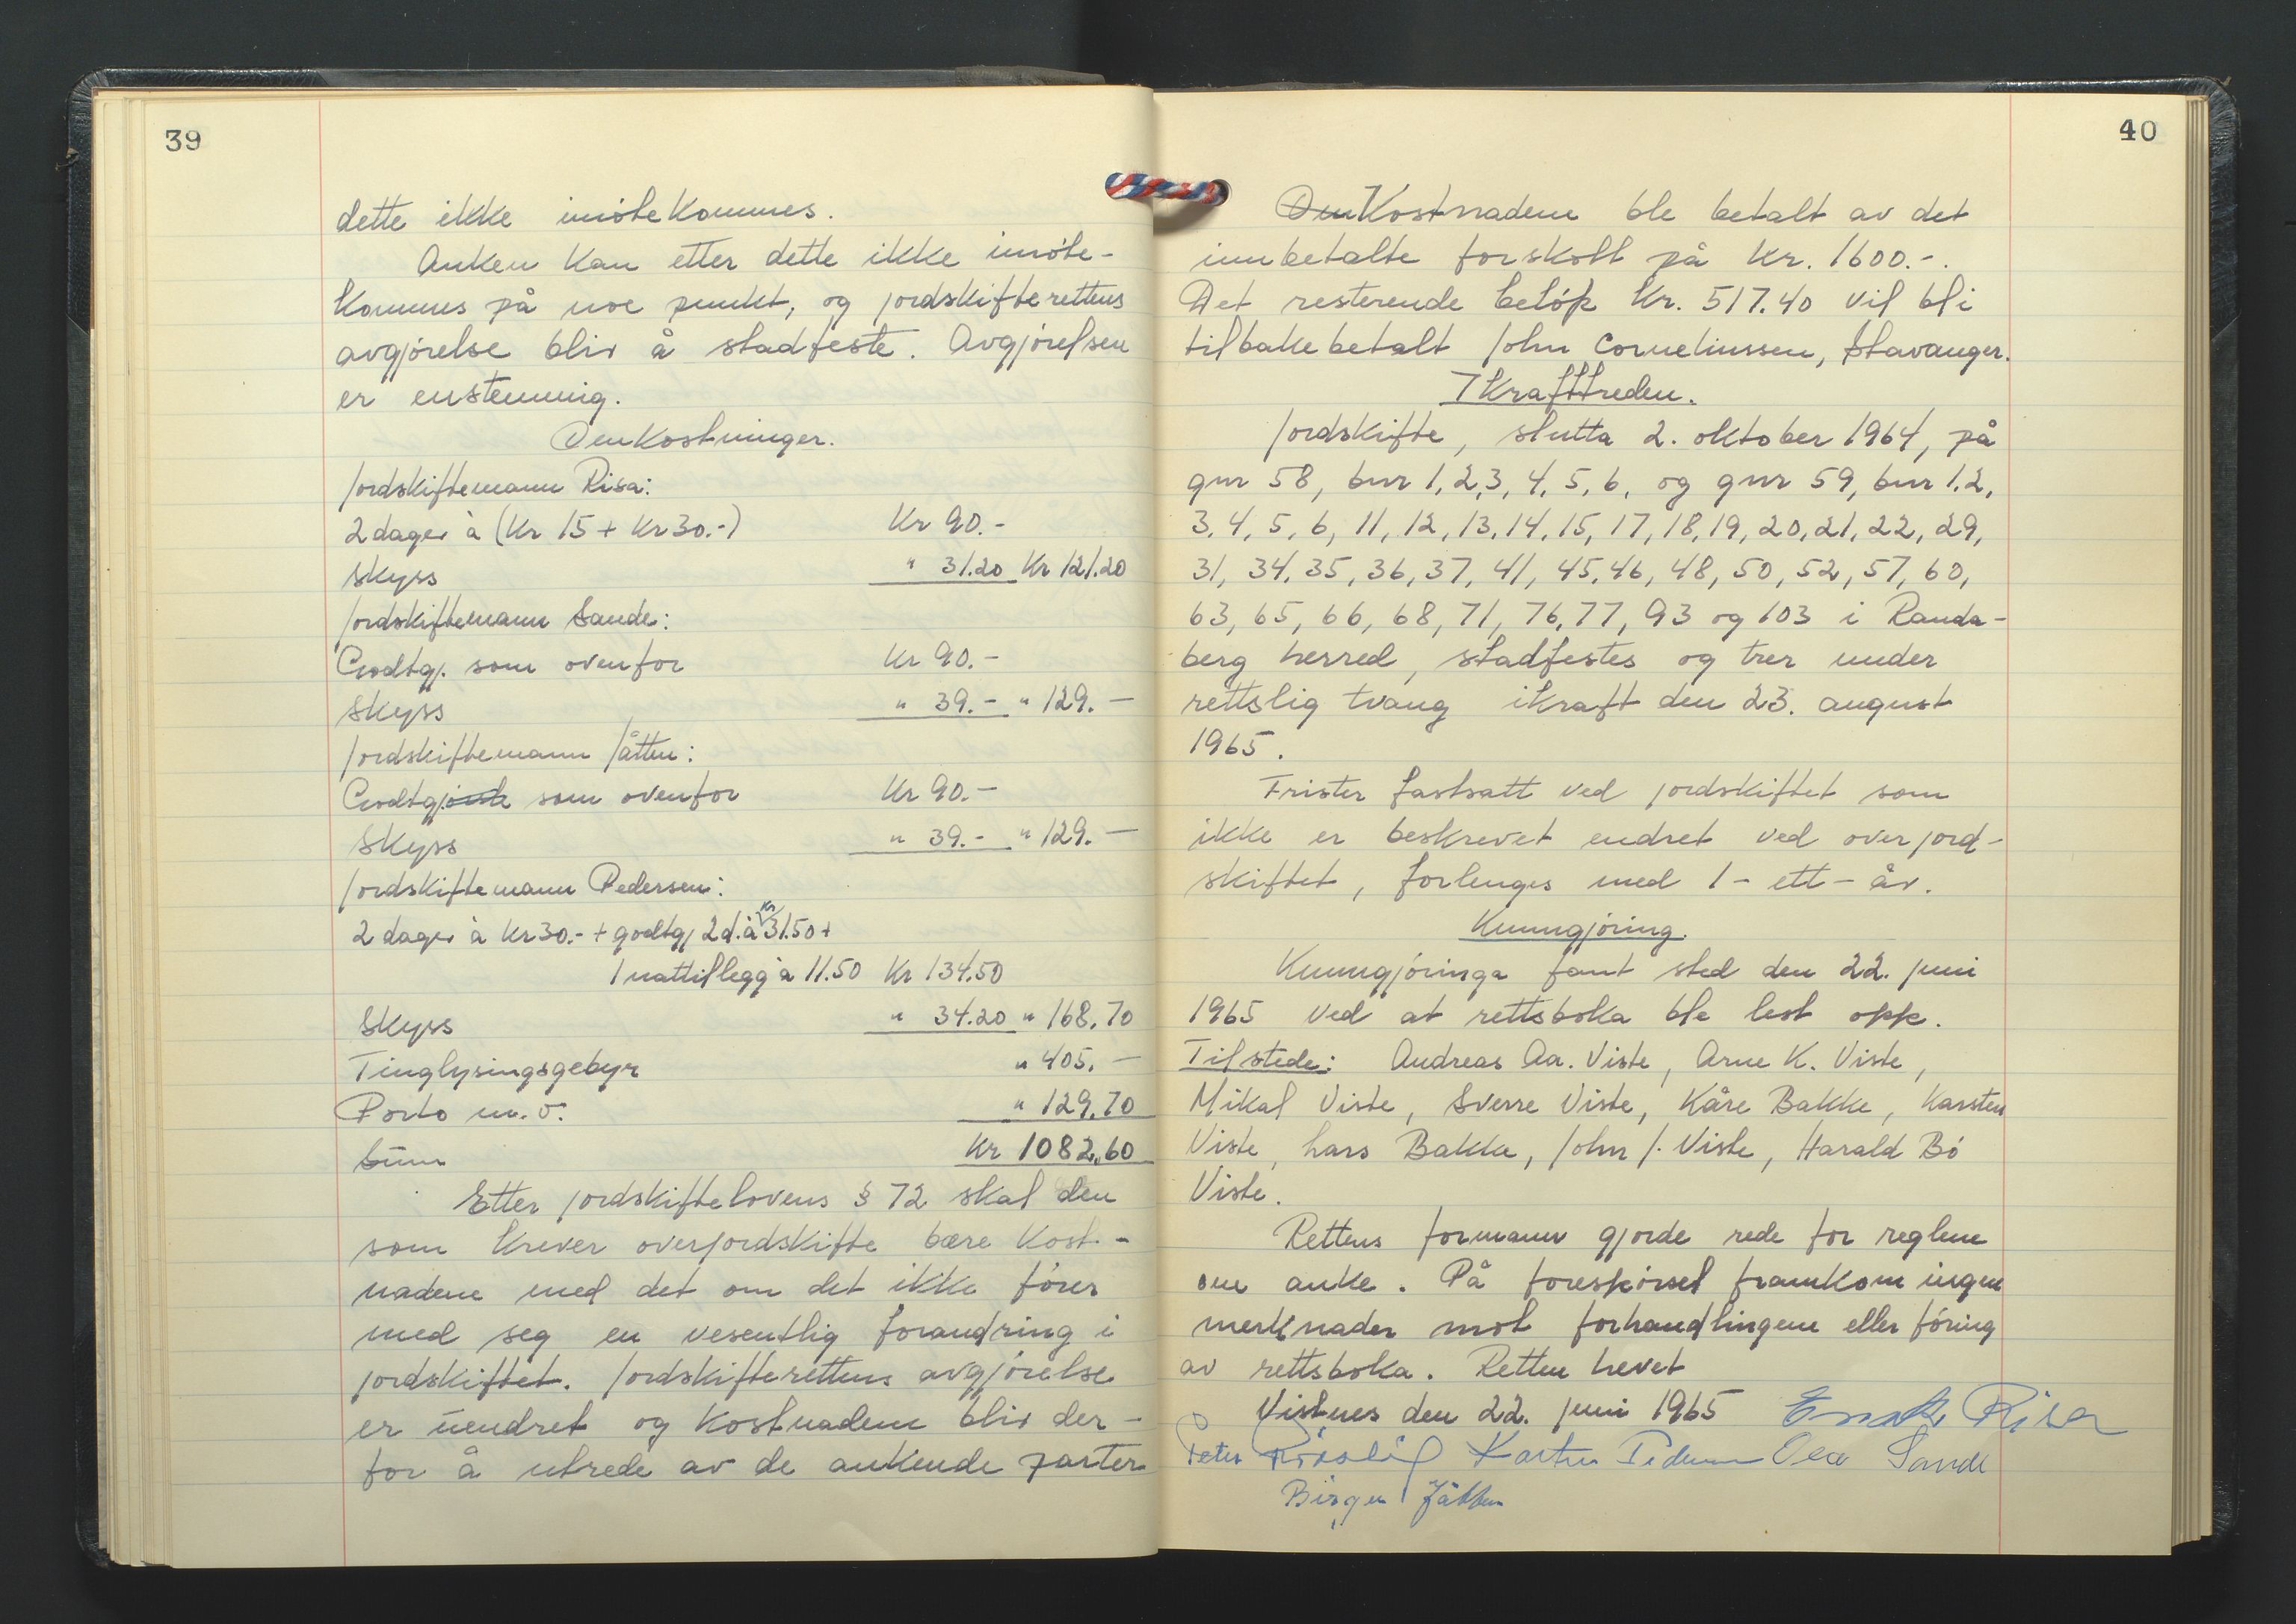 39
dette ikke imøtekommes.
Anken kan etter dette ikke imøte-
kommes på noe punkt, og jordskifterettens
avgjørelse blir å stadfeste. Avgjørelsen
er enstemmig.
Omkostninger.
Jordskiftemann Risa:
2 dager à (Kr 15 + Kr 30.-) Kr 90.-
Skyss " 31.20 Kr 121.20
Jordskiftemann Sande:
Godtgj. som ovenfor Kr 90.-
Skyss " 39.- " 129.-
Jordskiftemann Jåtten:
Godtgj som ovenfor Kr 90.-
Skyss " 39.- " 129.-
Jordskiftemann Pedersen:
2 dager à Kr 30.- + godtgj 2 d. à Kr 31.50 +
1 nattillegg à 11.50 Kr 134.50
Skyss " 34.20 " 168.70
Tinglysingsgebyr " 405.-
Porto m.v. " 129.70
Sum Kr 1082.60
Etter jordskiftelovens § 72 skal den
som krever overjordskifte bære kost-
nadene med det om det ikke fører
med seg en vesentlig forandring i
jordskiftet. Jordskifterettens avgjørelse
er uendret og kostnadene blir der-
for å utrede av de ankende parter
40
Omkostnadene ble betalt av det
innbetalte forskott på kr. 1600.-.
Det resterende beløp kr. 517.40 vil bli
tilbakebetalt John Corneliussen, Stavanger.
Ikrafttreden.
Jordskifte, slutta 2. oktober 1964, på
gnr 58, bnr 1, 2, 3, 4, 5, 6, og gnr 59, bnr 1, 2,
3, 4, 5, 6, 11, 12, 13, 14, 15, 17, 18, 19, 20, 21, 22, 29,
31, 34, 35, 36, 37, 41, 45, 46, 48, 50, 52, 57, 60,
63, 65, 66, 68, 71, 76, 77, 93 og 103 i Randa-
berg herred, stadfestes og trer under
rettslig tvang ikraft den 23. august
1965.
Frister fastsatt ved jordskiftet som
ikke er beskrevet endret ved overjord-
skiftet, forlenges med 1 - ett - år.
Kunngjøring.
Kunngjøringa fant sted den 22. juni
1965 ved at rettsboka ble lest opp.
Tilstede: Andreas Aa. Viste, Arne K. Viste,
Mikal Viste, Sverre Viste, Kåre Bakke, Karsten
Viste, Lars Bakke, John J. Viste, Harald Bø
Viste.
Rettens formann gjorde rede for reglene
om anke. På forespørsel framkom ingen
merknader mot forhandlingene eller føring
av rettsboka. Retten hevet
Vistnes den 22. juni 1965 Risa
Peter Pedersen Sande
Birger Jåtten